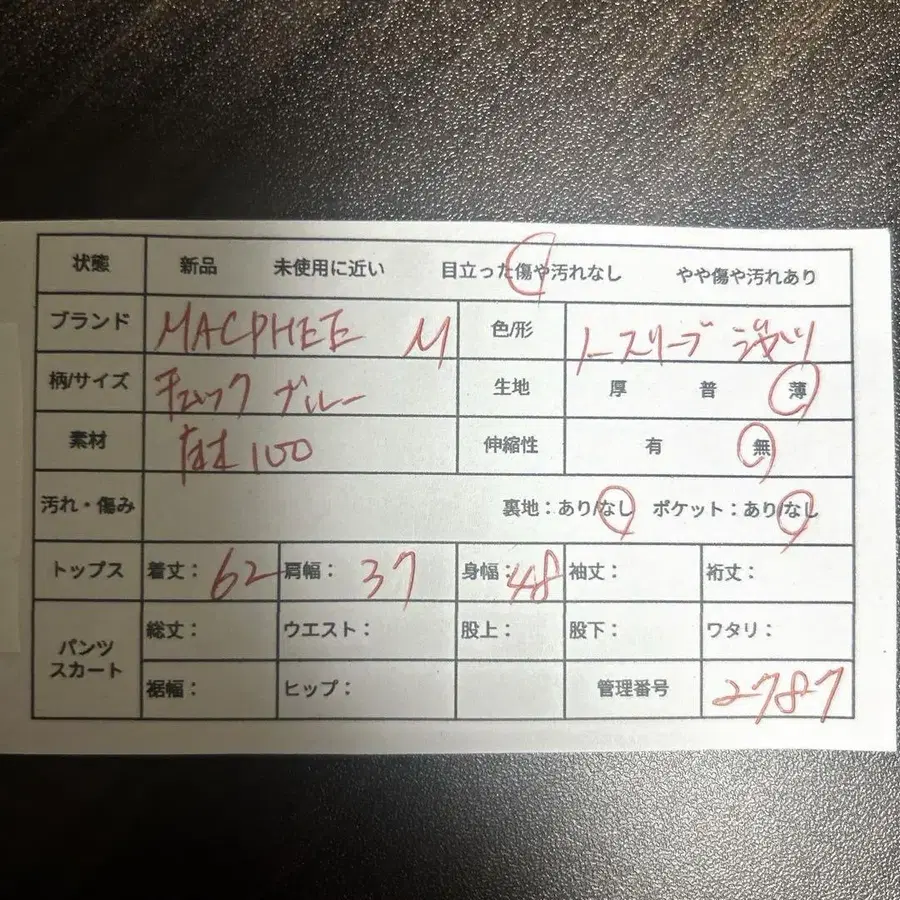 状態 新品 未使用に近い 目立った傷や汚れなし やや傷や汚れあり
ブランド MACPHEE M 色/形 ノースリーブ シャツ
柄/サイズ チェック ブルー 生地 厚 普 薄
素材 麻 100 伸縮性 有 無
汚れ・傷み 裏地：あり/なし ポケット：あり/なし
トップス 着丈： 62 肩幅： 37 身幅： 48 袖丈： 裄丈：
パンツ スカート 総丈： ウエスト： 股上： 股下： ワタリ：
裾幅： ヒップ： 管理番号 2787